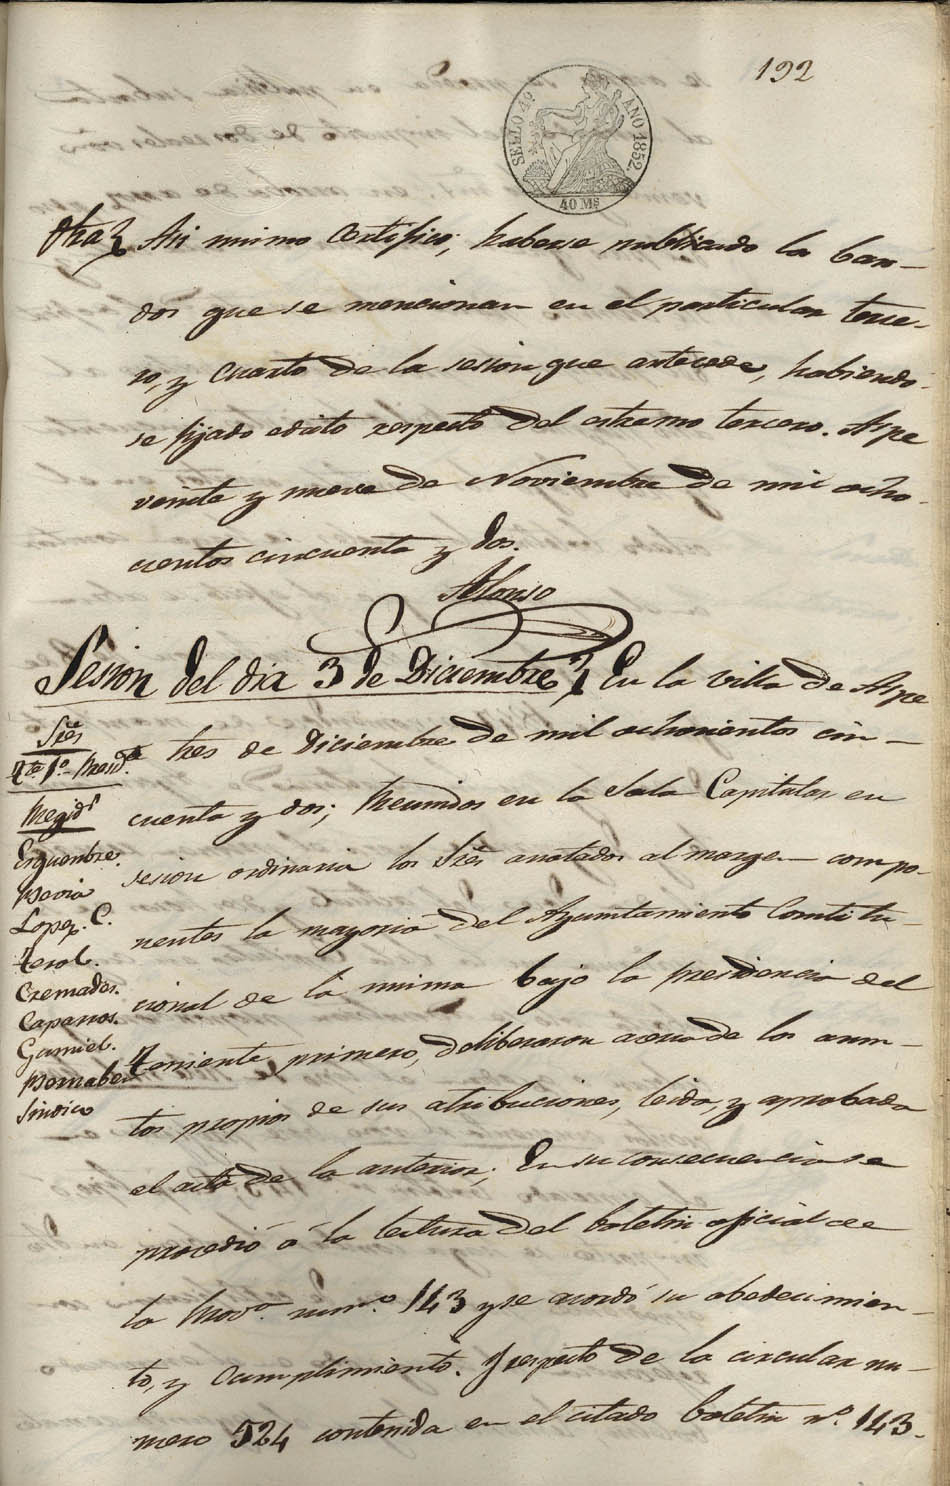 192
SELLO 4º AÑO 1852.
40 Ms
Otra} Asi mismo Certifico; haberse publicado la ban-
dos que se mencionan en el particular terce-
ro, y cuarto de la sesion que antecede, habiendo-
se fijado edicto respecto del estremo tercero. Aspe
veinte y nueve de Noviembre de mil ocho-
cientos cincuenta y dos.
Alonso
Sesion del dia 3 de Diciembre} En la villa de Aspe
tres de Diciembre de mil ochocientos cin-
cuenta y dos; Reunidos en la Sala Capitular en
sesion ordinaria los Sres anotados al margen compo-
nentes la mayoria del Ayuntamiento Constitu-
cional de la misma bajo la presidencia del
Teniente primero, deliberaron acerca de los asun-
tos propios de sus atribuciones, leida, y aprobada
el acta de la anterior; En su consecuencia se
procedió á la lectura del boletin oficial de
la Prova. numo. 143 y se acordó su obedecimien-
to, y cumplimiento. Y respecto de la circular nu-
mero 524 contenida en el citado boletin no. 143.
Sres
Tte 1º Presidte
Regids
Erquembre.
Pavia
Lopez. C.
Terol.
Cremades.
Caparros.
Gumiel.
Pernabeu
Sindico